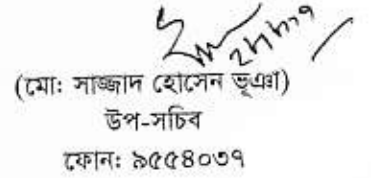 (মো: সাজ্জাদ হোসেন ভূঞা)
উপ-সচিব
ফোন: ৯৫৫৪০৩৭